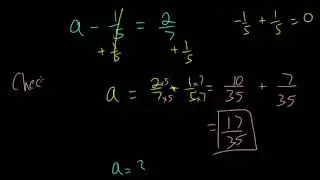 a - 1/5 = 2/7    -1/5 + 1/5 = 0
+ 1/5    + 1/5
Chec
a = 2×5/7×5 + 1×7/5×7 = 10/35 + 7/35
= 17/35
a = ?